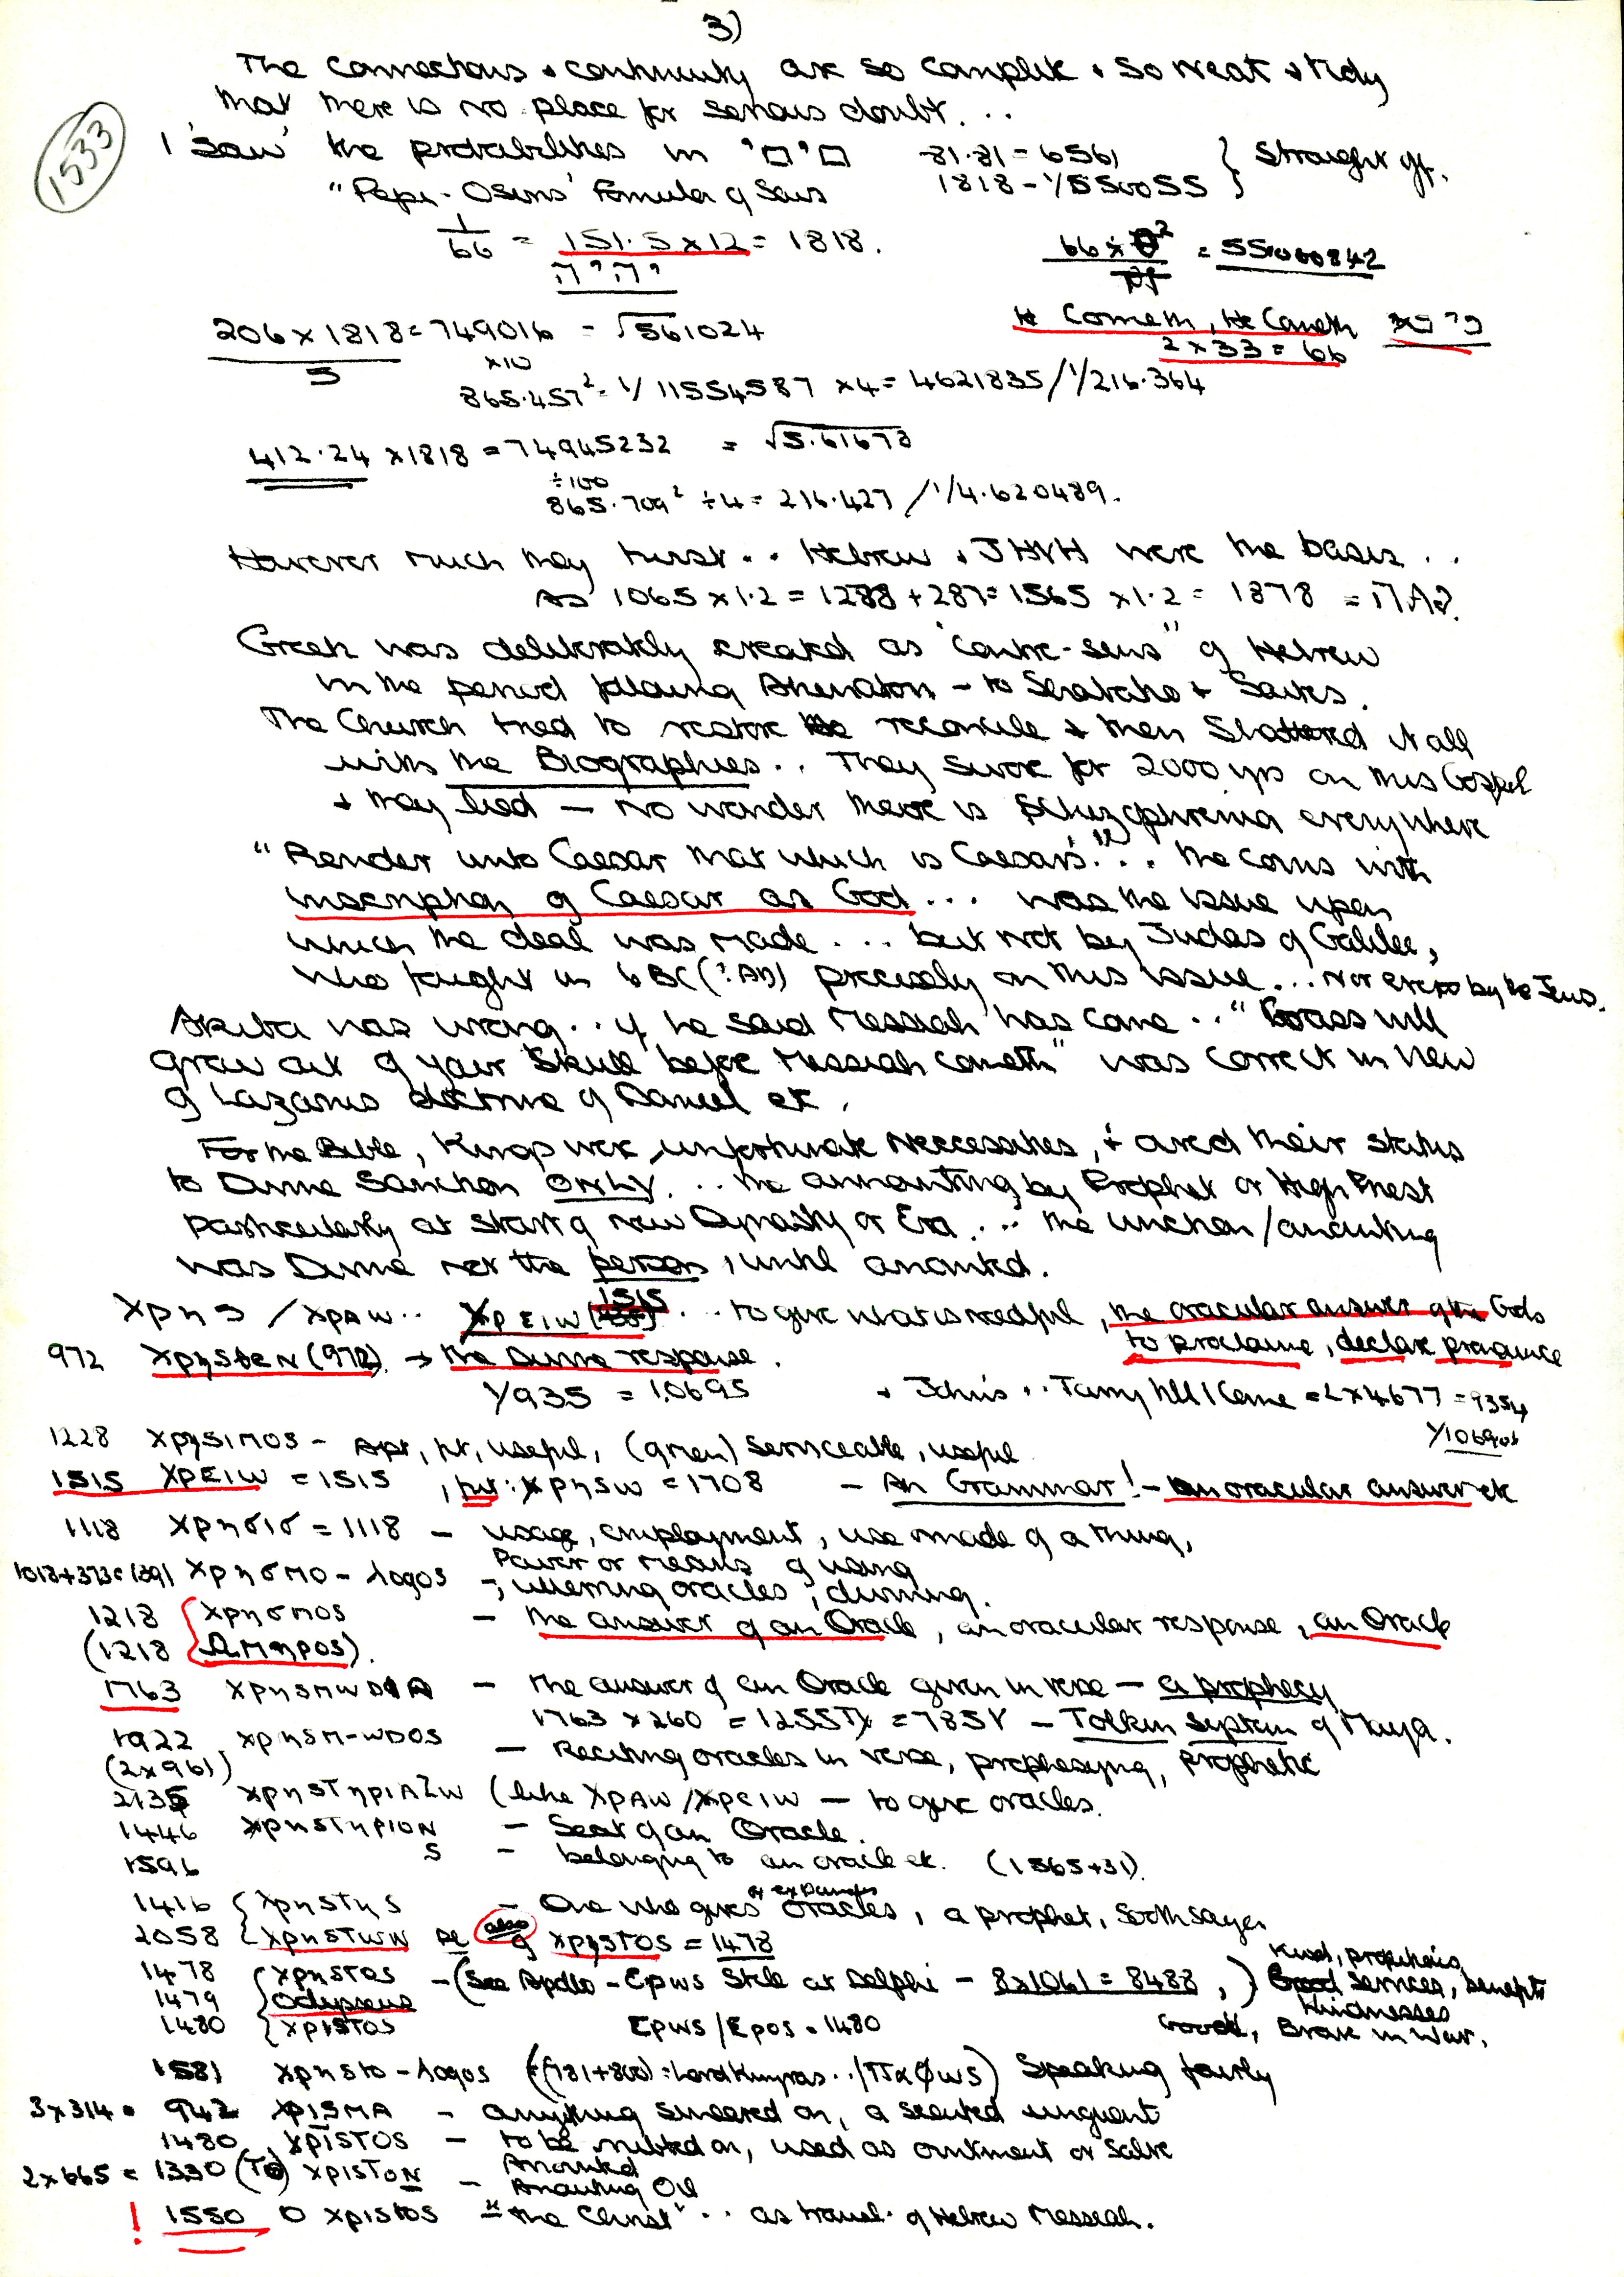 3)
1533
The connections & continuity are so complete & so neat & tidy
that there is no place for serious doubt...
I 'saw' the probabilities in '□'□ 81.81 = 6561 } Straight off.
"Pepi-Osiris' Formula of Seus 1818 - 1/550055
1/66 = 151.5 x 12 = 1818.
יהוה
= 55,000842
He Cometh, He Cometh
2 x 33 = 66
206 x 1818 = 749016 = √561024
5 x10
865.457² = 1/11554587 x 4 = 4621835 / 1/216.364
412.24 x 1818 = 74945232 = √5.61678
÷100
865.709² ÷ 4 = 216.427 / 1/4.620489.
However much they twist.. Hebrew & JHVH were the basis ..
As 1065 x 1.2 = 1288 + 287 = 1565 x 1.2 = 1878
Greek was deliberately created as "contre-sens" of Hebrew
in the period following Akenaton - to Shabaka & Saites.
The Church tried to restore reconcile & then Shattered it all
with the Biographies.. They swore for 2000 yrs on this Gospel
& they lied — no wonder there is Schizophrenia everywhere
"Render unto Caesar that which is Caesar's"... the coins with
inscription of Caesar as God... was the issue upon
which the deal was made... but not by Judas of Galilee,
who fought in 6 BC (?AD) precisely on this issue... nor even by the Jews.
Akiba was wrong.. if he said Messiah has come.. "Grass will
grow out of your Skull before Messiah cometh" was correct in view
of Lazarus doctrine of Daniel etc.
For the Bible, Kings were unfortunate neccessities, & owed their status
to Divine Sanction ONLY... the annointing by Prophet or High Priest
particularly at start of new Dynasty or Era... the unction/anointing
was Divine not the person, until anointed.
Χρης / Χραω.. ΧρΕΙω (1515).. to give what is needful, the oracular answer of the Gods
to proclaim, declare pronounce
972 ΧρηsteN (972) → the Divine response.
1/935 = 1.0695 & John's.. Tarry till I Come = 2 x 4677 = 9354
1/10690
1228 ΧρηsIMOS - Apt, fit, useful, (given) serviceable, useful
1515 ΧρΕΙω = 1515, fut: Χρηsω = 1708 — An Grammar! - an oracular answer etc
1118 Χρησισ = 1118 - usage, employment, use made of a thing,
Power or means of using
1018+373=1391 ΧρησΜΟ-λογος -, uttering oracles, divining.
1218 { ΧρησΜΟS - the answer of an Oracle, an oracular response, an Oracle
(1218 { ΩΜηροS).
1763 ΧρηsΜωDIA - the answer of an Oracle given in verse — a prophecy
1763 x 260 = 1255Ty = 785Y — Tolkin system of Maya.
1922 ΧρηsΜ-ωDOS — Reciting oracles in verse, prophesying, prophetic
(2x961)
2135 ΧρηsTηρIAZω (like ΧρAω/ΧρεIω — to give oracles.
1446 ΧρηsTηρION - Seat of an Oracle.
1596 S - belonging to an oracle etc. (1565+31).
1416 { ΧρηsTηs - One who gives or expounds oracles, a prophet, Soothsayer
2058 { ΧρηsTωN also of ΧρηsTOS = 1478
1478 { ΧρηsTOS - (See Apollo - Ερωs Stele at Delphi - 8x1061 = 8488,) Good Services, benefits
Kindnesses
1479 { Odysseus
1480 { ΧρIsTOS Ερωs/Epos = 1480 Good, Brave in War.
1581 ΧρηsTO-λογος ((781+800) = Lord Kinyras../ΠαΦωs) Speaking fairly
3x314 = 942 ΧρISMA - anything smeared on, a scented unguent
1480 ΧρISTOS - to be rubbed on, used as ointment or salve
Anointed
2x665 = 1330 (TO) ΧρISTON - Anointing Oil
! 1550 O ΧρISTOS = "the Christ".. as transl. of Hebrew Messiah.